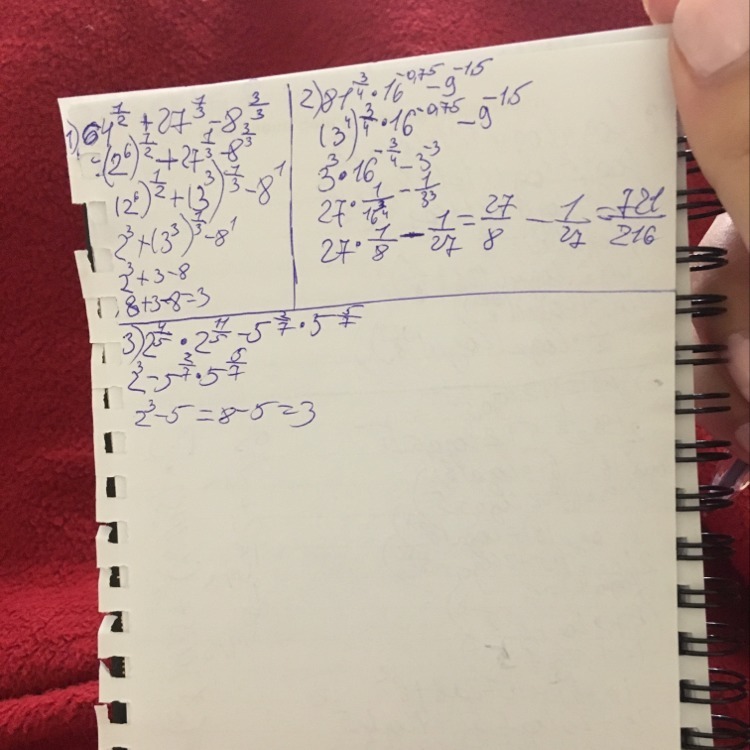 1) 64^{1/2} + 27^{1/3} - 8^{3/3}
= (2^6)^{1/2} + 27^{1/3} - 8^{3/3}
(2^6)^{1/2} + (3^3)^{1/3} - 8^1
2^3 + (3^3)^{1/3} - 8^1
2^3 + 3 - 8
8 + 3 - 8 = 3
2) 81^{3/4} · 16^{-0,75} - 9^{-1,5}
(3^4)^{3/4} · 16^{-0,75} - 9^{-1,5}
3^3 · 16^{-3/4} - 3^{-3}
27 · 1/16^{3/4} - 1/3^3
27 · 1/8 - 1/27 = 27/8 - 1/27 = 721/216
3) 2^{4/5} · 2^{11/5} - 5^{2/7} · 5^{5/7}
2^3 - 5^{2/7} · 5^{5/7}
2^3 - 5 = 8 - 5 = 3